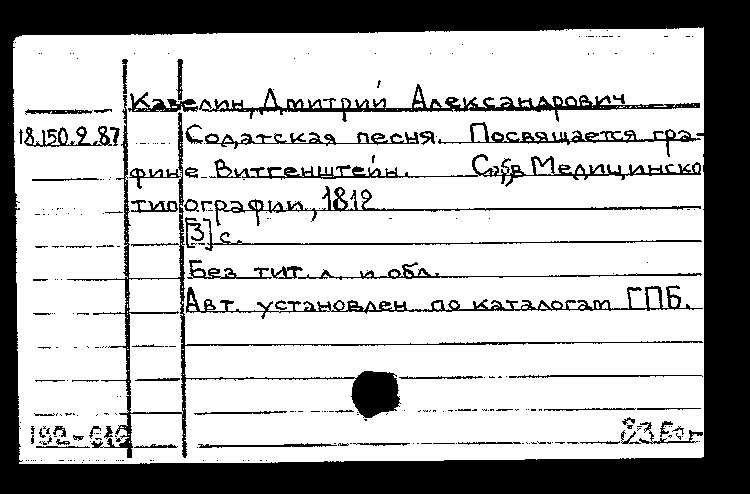 Кавелин, Дмитрий Александрович
18.150.2.87 Содатская песня. Посвящается гра-
фине Витгенштейн. Спб, в Медицинской
типографии, 1812
[3] с.
Без тит. л. и обл.
Авт. установлен по каталогам ГПБ.
192-612